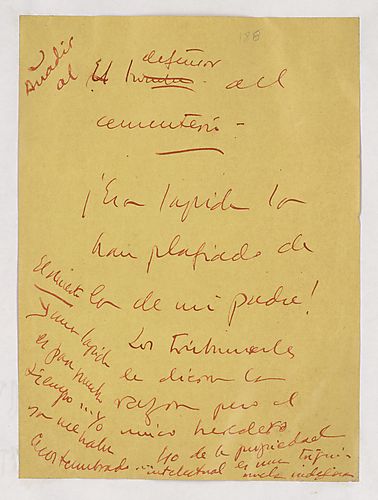 Añadir
al El defensor del
cementerio.-
¡Esa lápida la
han plagiado de
la de mi padre!
Los tribunales
le dieron la
razón pero el
único heredero
de la propiedad
intelectual es una
El muerto
lápida
es para mucho
tiempo... Yo
ya me había
acostumbrado...